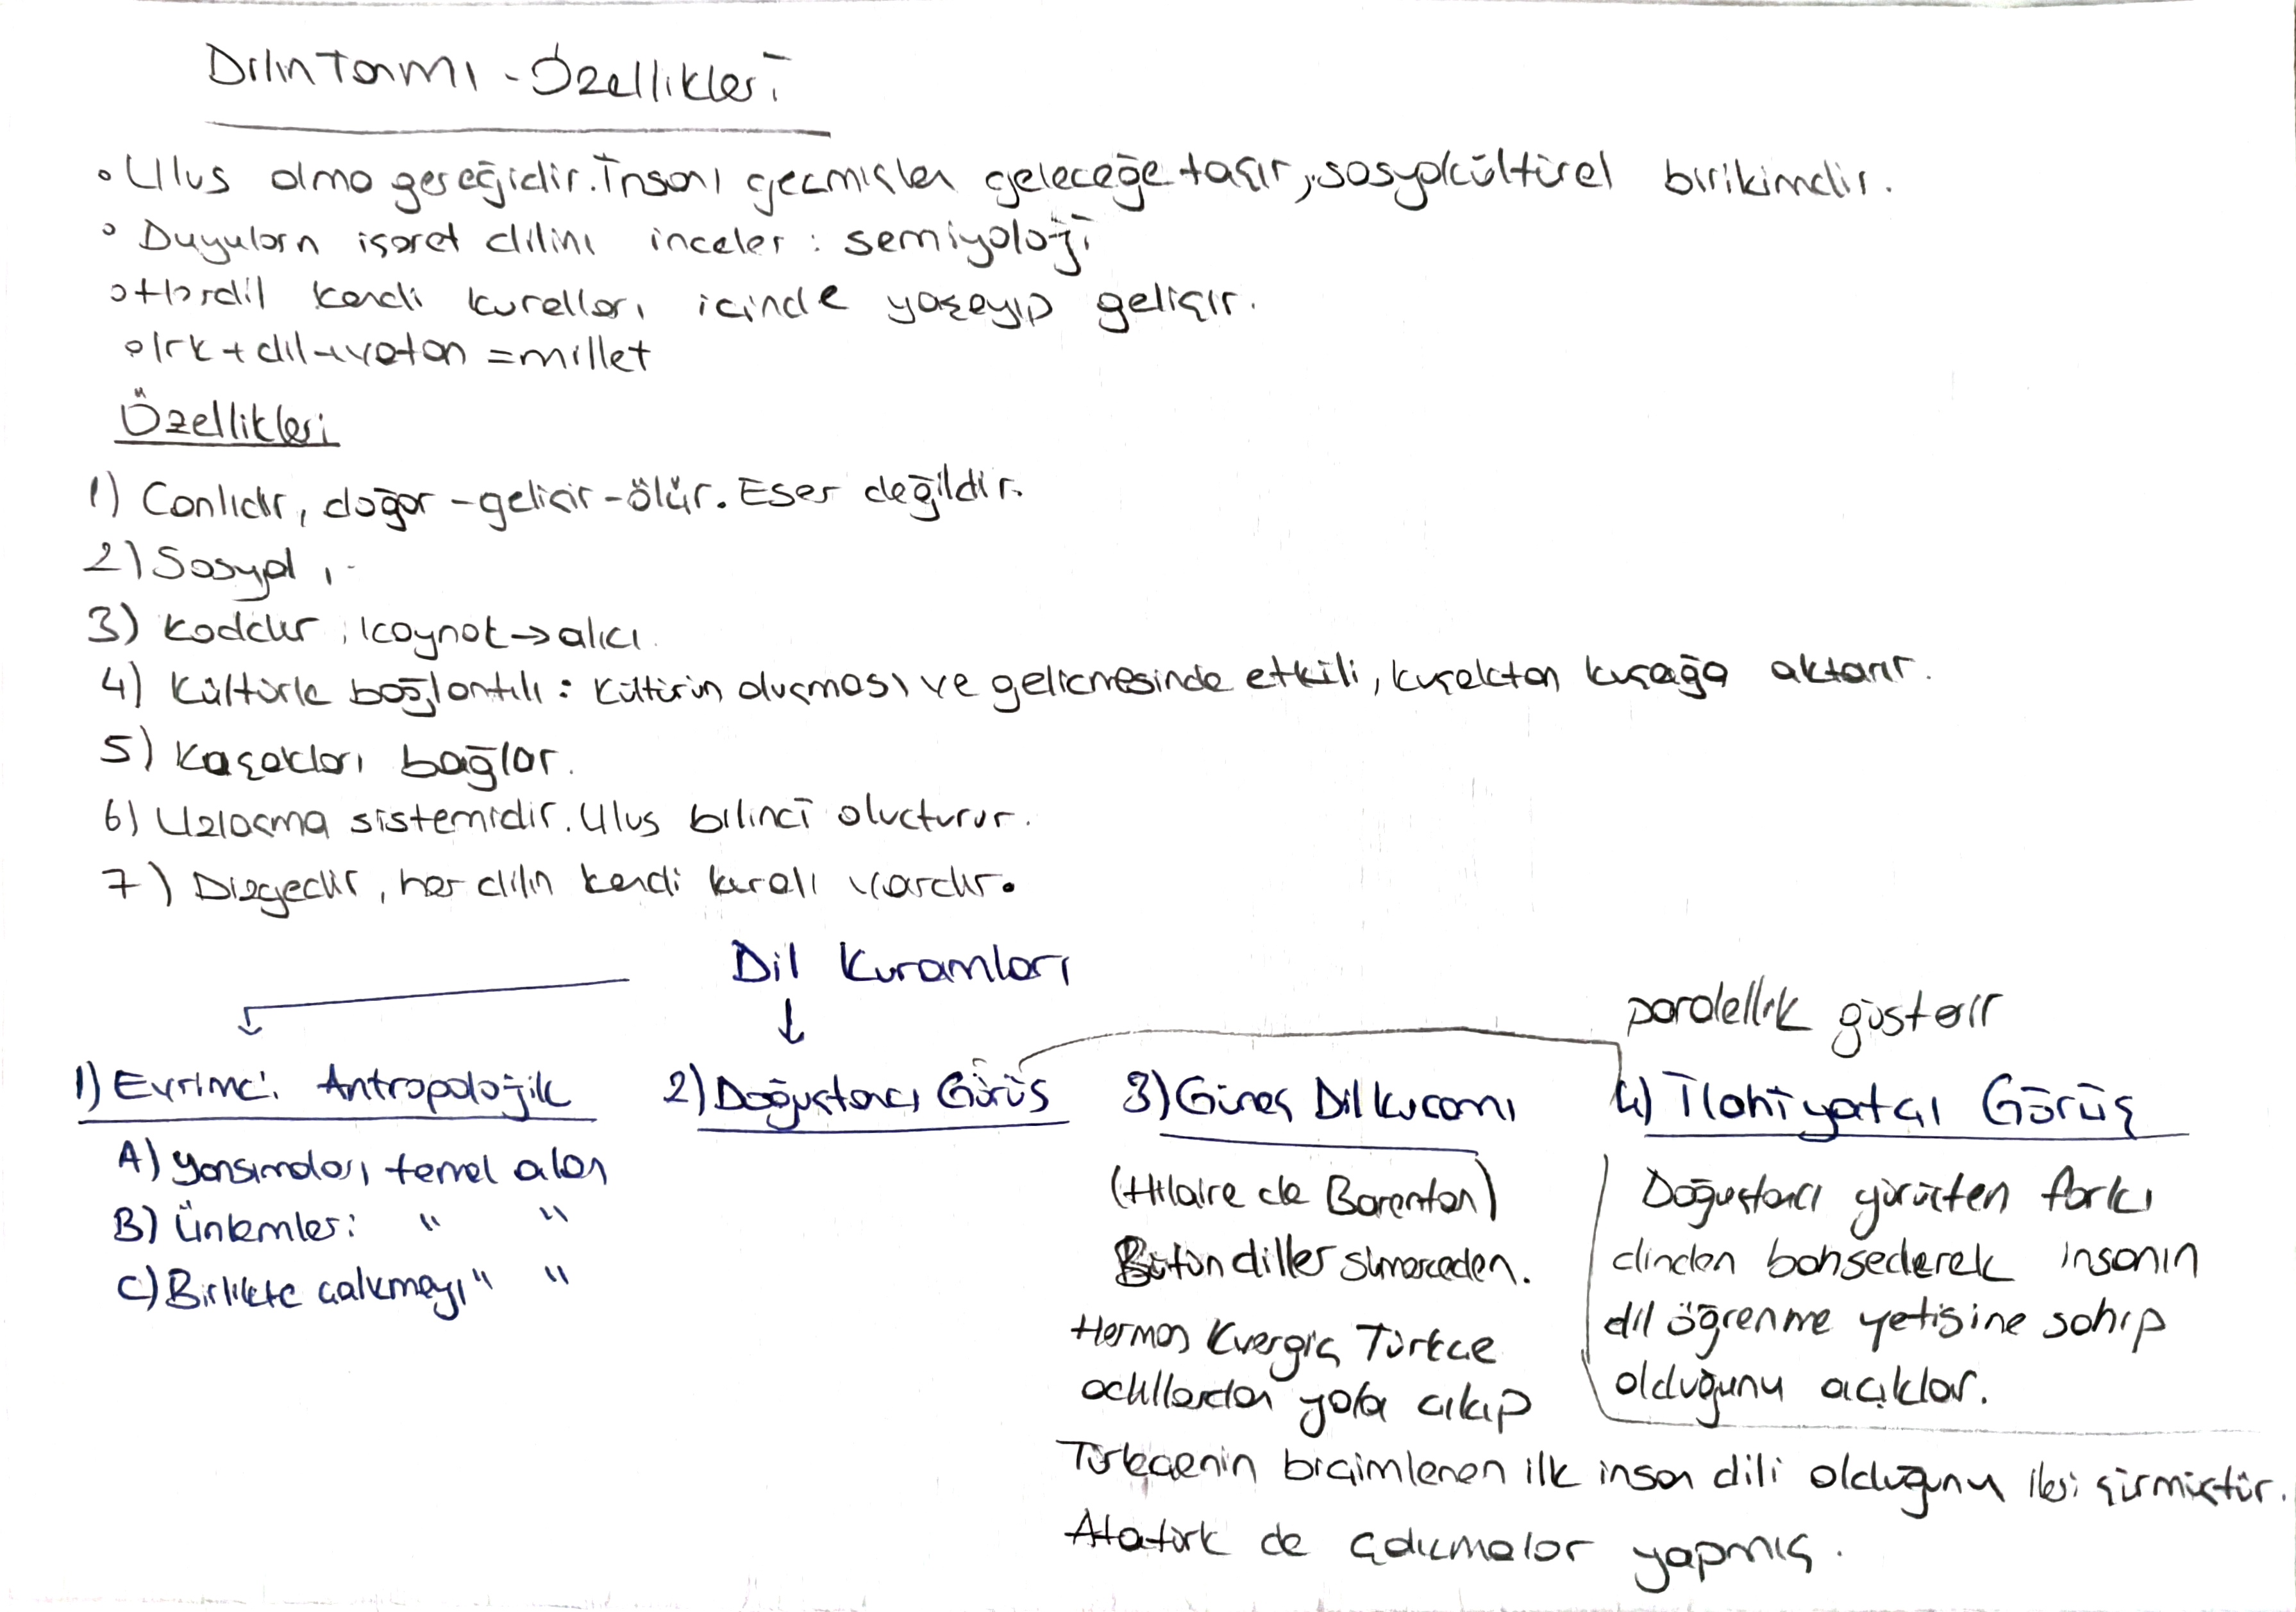 Dilin Tanımı - Özellikleri
• Ulus olma gereğidir. İnsanı geçmişten geleceğe taşır, sosyokültürel birikimdir.
• Duyuların işaret dilini inceler : semiyoloji
• Her dil kendi kuralları içinde yaşayıp gelişir.
• Irk + dil + vatan = millet
Özellikleri
1) Canlıdır, doğar - gelişir - ölür. Eser değildir.
2) Sosyal,
3) Koddur, kaynak → alıcı.
4) Kültürle bağlantılı : Kültürün oluşması ve gelişmesinde etkili, kuşaktan kuşağa aktarır.
5) Kuşakları bağlar.
6) Uzlaşma sistemidir. Ulus bilinci oluşturur.
7) Dizgedir, her dilin kendi kuralı vardır.
Dil Kuramları
paralellik gösterir
1) Evrimci Antropolojik
2) Doğuştancı Görüş
3) Güneş Dil Kuramı
4) İlahiyatçı Görüş
A) Yansımaları temel alan
B) Ünlemleri " "
C) Birlikte çalışmayı " "
(Hilaire de Barenton)
Bütün diller sümerceden.
Herman Kvergiç Türkçe
adıllardan yola çıkıp
Türkçenin biçimlenen ilk insan dili olduğunu ileri sürmüştür.
Atatürk de çalışmalar yapmış.
Doğuştancı görüşten farkı
dinden bahsederek insanın
dil öğrenme yetisine sahip
olduğunu açıklar.